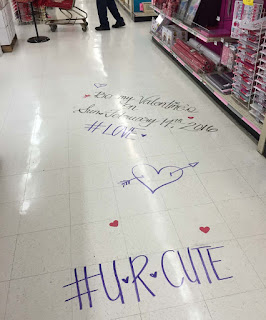 Be my Valentine's
on
Sun. February 14th, 2016
#LOVE
#U•R•CUTE